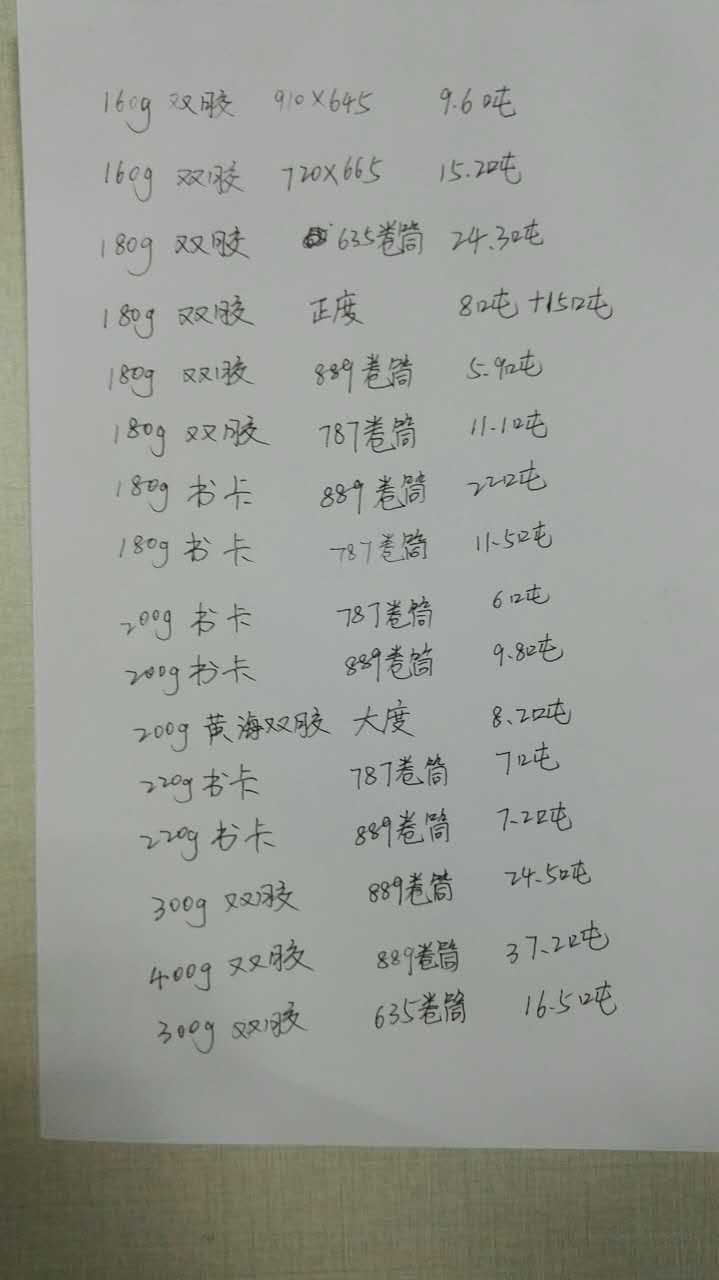 160g 双胶 910×645 9.6吨
160g 双胶 720×665 15.2吨
180g 双胶 635卷筒 24.3吨
180g 双胶 正度 8吨+15吨
180g 双胶 889卷筒 5.9吨
180g 双胶 787卷筒 11.1吨
180g 书卡 889卷筒 22吨
180g 书卡 787卷筒 11.5吨
200g 书卡 787卷筒 6吨
200g 书卡 889卷筒 9.8吨
200g 黄海双胶 大度 8.2吨
220g 书卡 787卷筒 7吨
220g 书卡 889卷筒 7.2吨
300g 双胶 889卷筒 24.5吨
400g 双胶 889卷筒 37.2吨
300g 双胶 635卷筒 16.5吨